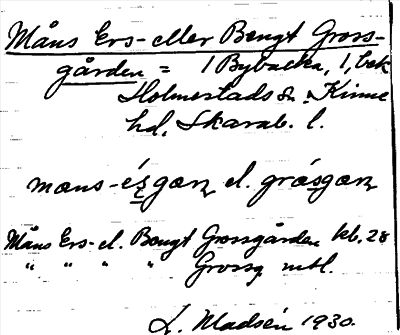 Måns Ers- eller Bengt Gross-
gården = 1 Bybacka, 1, bek
Holmestads sn. Kinne
hd, Skarab. l.
mɑns-éʂgɑɳ el. grósgɑɳ
Måns Ers- el. Bengt Grossgården kb. 28
" " " " Grossg mtl.
L. Madsén 1930.